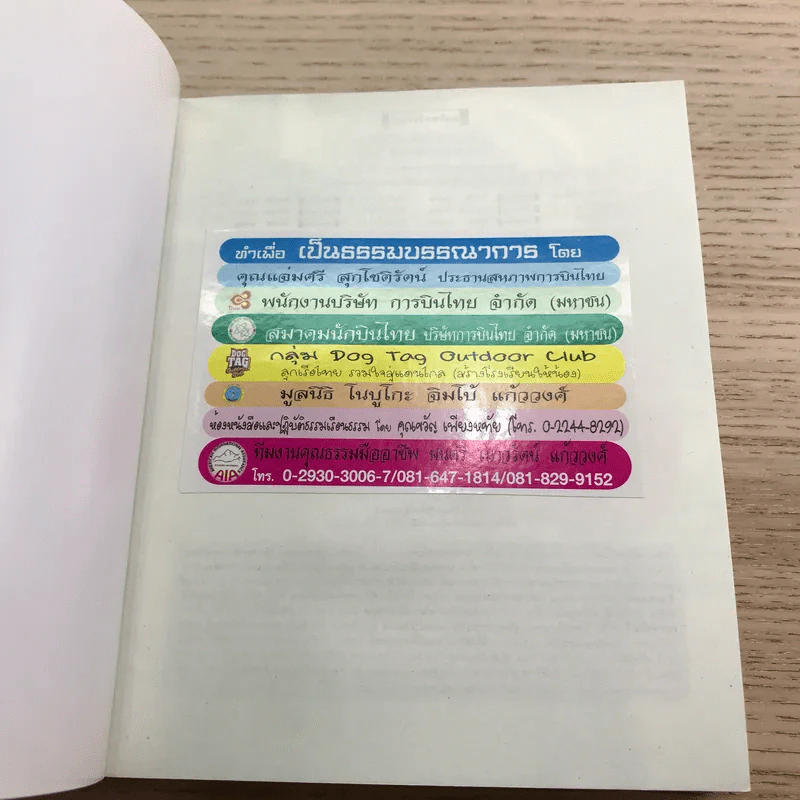 ทำเพื่อ เป็นธรรมบรรณาการ โดย
คุณแจ่มศรี สุกโชติรัตน์ ประธานสหภาพการบินไทย
พนักงานบริษัท การบินไทย จำกัด (มหาชน)
สมาคมนักบินไทย บริษัทการบินไทย จำกัด (มหาชน)
DOG TAG กลุ่ม Dog Tag Outdoor Club
ลูกเรือไทย รวมใจสู่แดนไกล (สร้างโรงเรียนให้น้อง)
มูลนิธิ โนบูโกะ อิมโบ้ แก้ววงศ์
ห้องหนังสือและปฏิบัติธรรมเรือนธรรม โดย คุณขวัญ เพียงหทัย (โทร. 0-2244-8292)
AIA ทีมงานคุณธรรมมืออาชีพ มนตรี เยาวรัตน์ แก้ววงศ์
โทร. 0-2930-3006-7/081-647-1814/081-829-9152